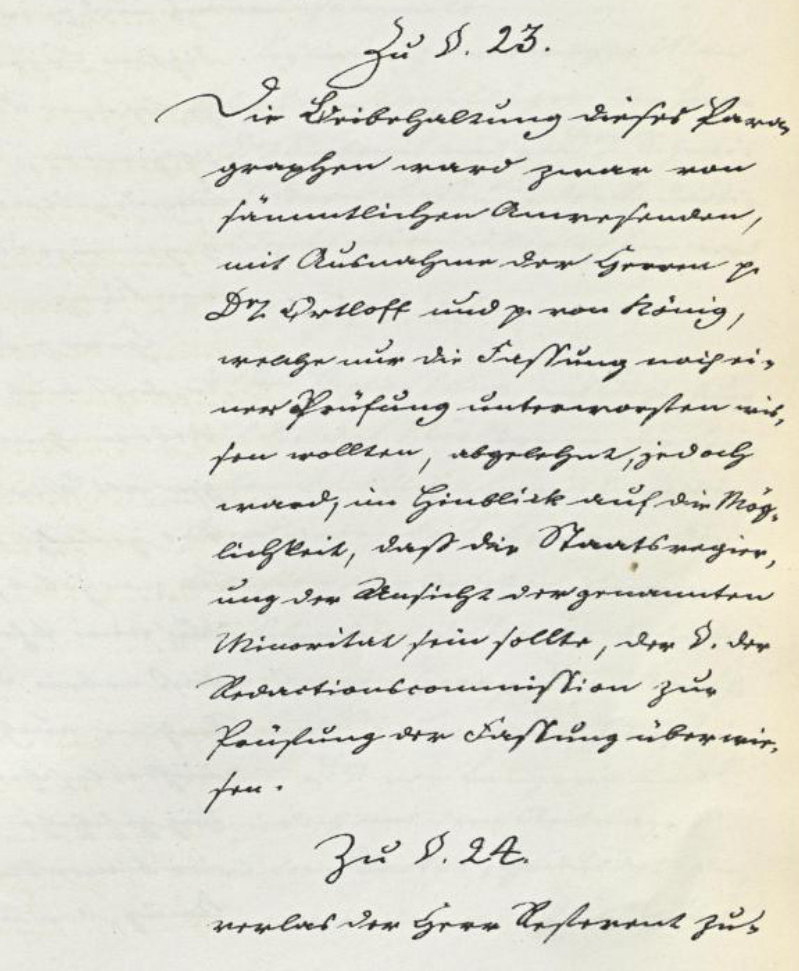 Zu §. 23.
Die Beibehaltung dieses Para-
graphen ward zwar von
sämmtlichen Anwesenden,
mit Ausnahme der Herren p.
Dr. Ortloff und p. von König,
welche nur die Fassung noch ei-
ner Prüfung unterworfen wis-
sen wollten, abgelehnt, jedoch
ward, im Hinblick auf die Mög-
lichkeit, daß die Staatsregier-
ung der Ansicht der genannten
Minorität sein sollte, der §. der
Redactionscommission zur
Prüfung der Fassung überwie-
sen.
Zu §. 24.
verlas der Herr Referent zu-